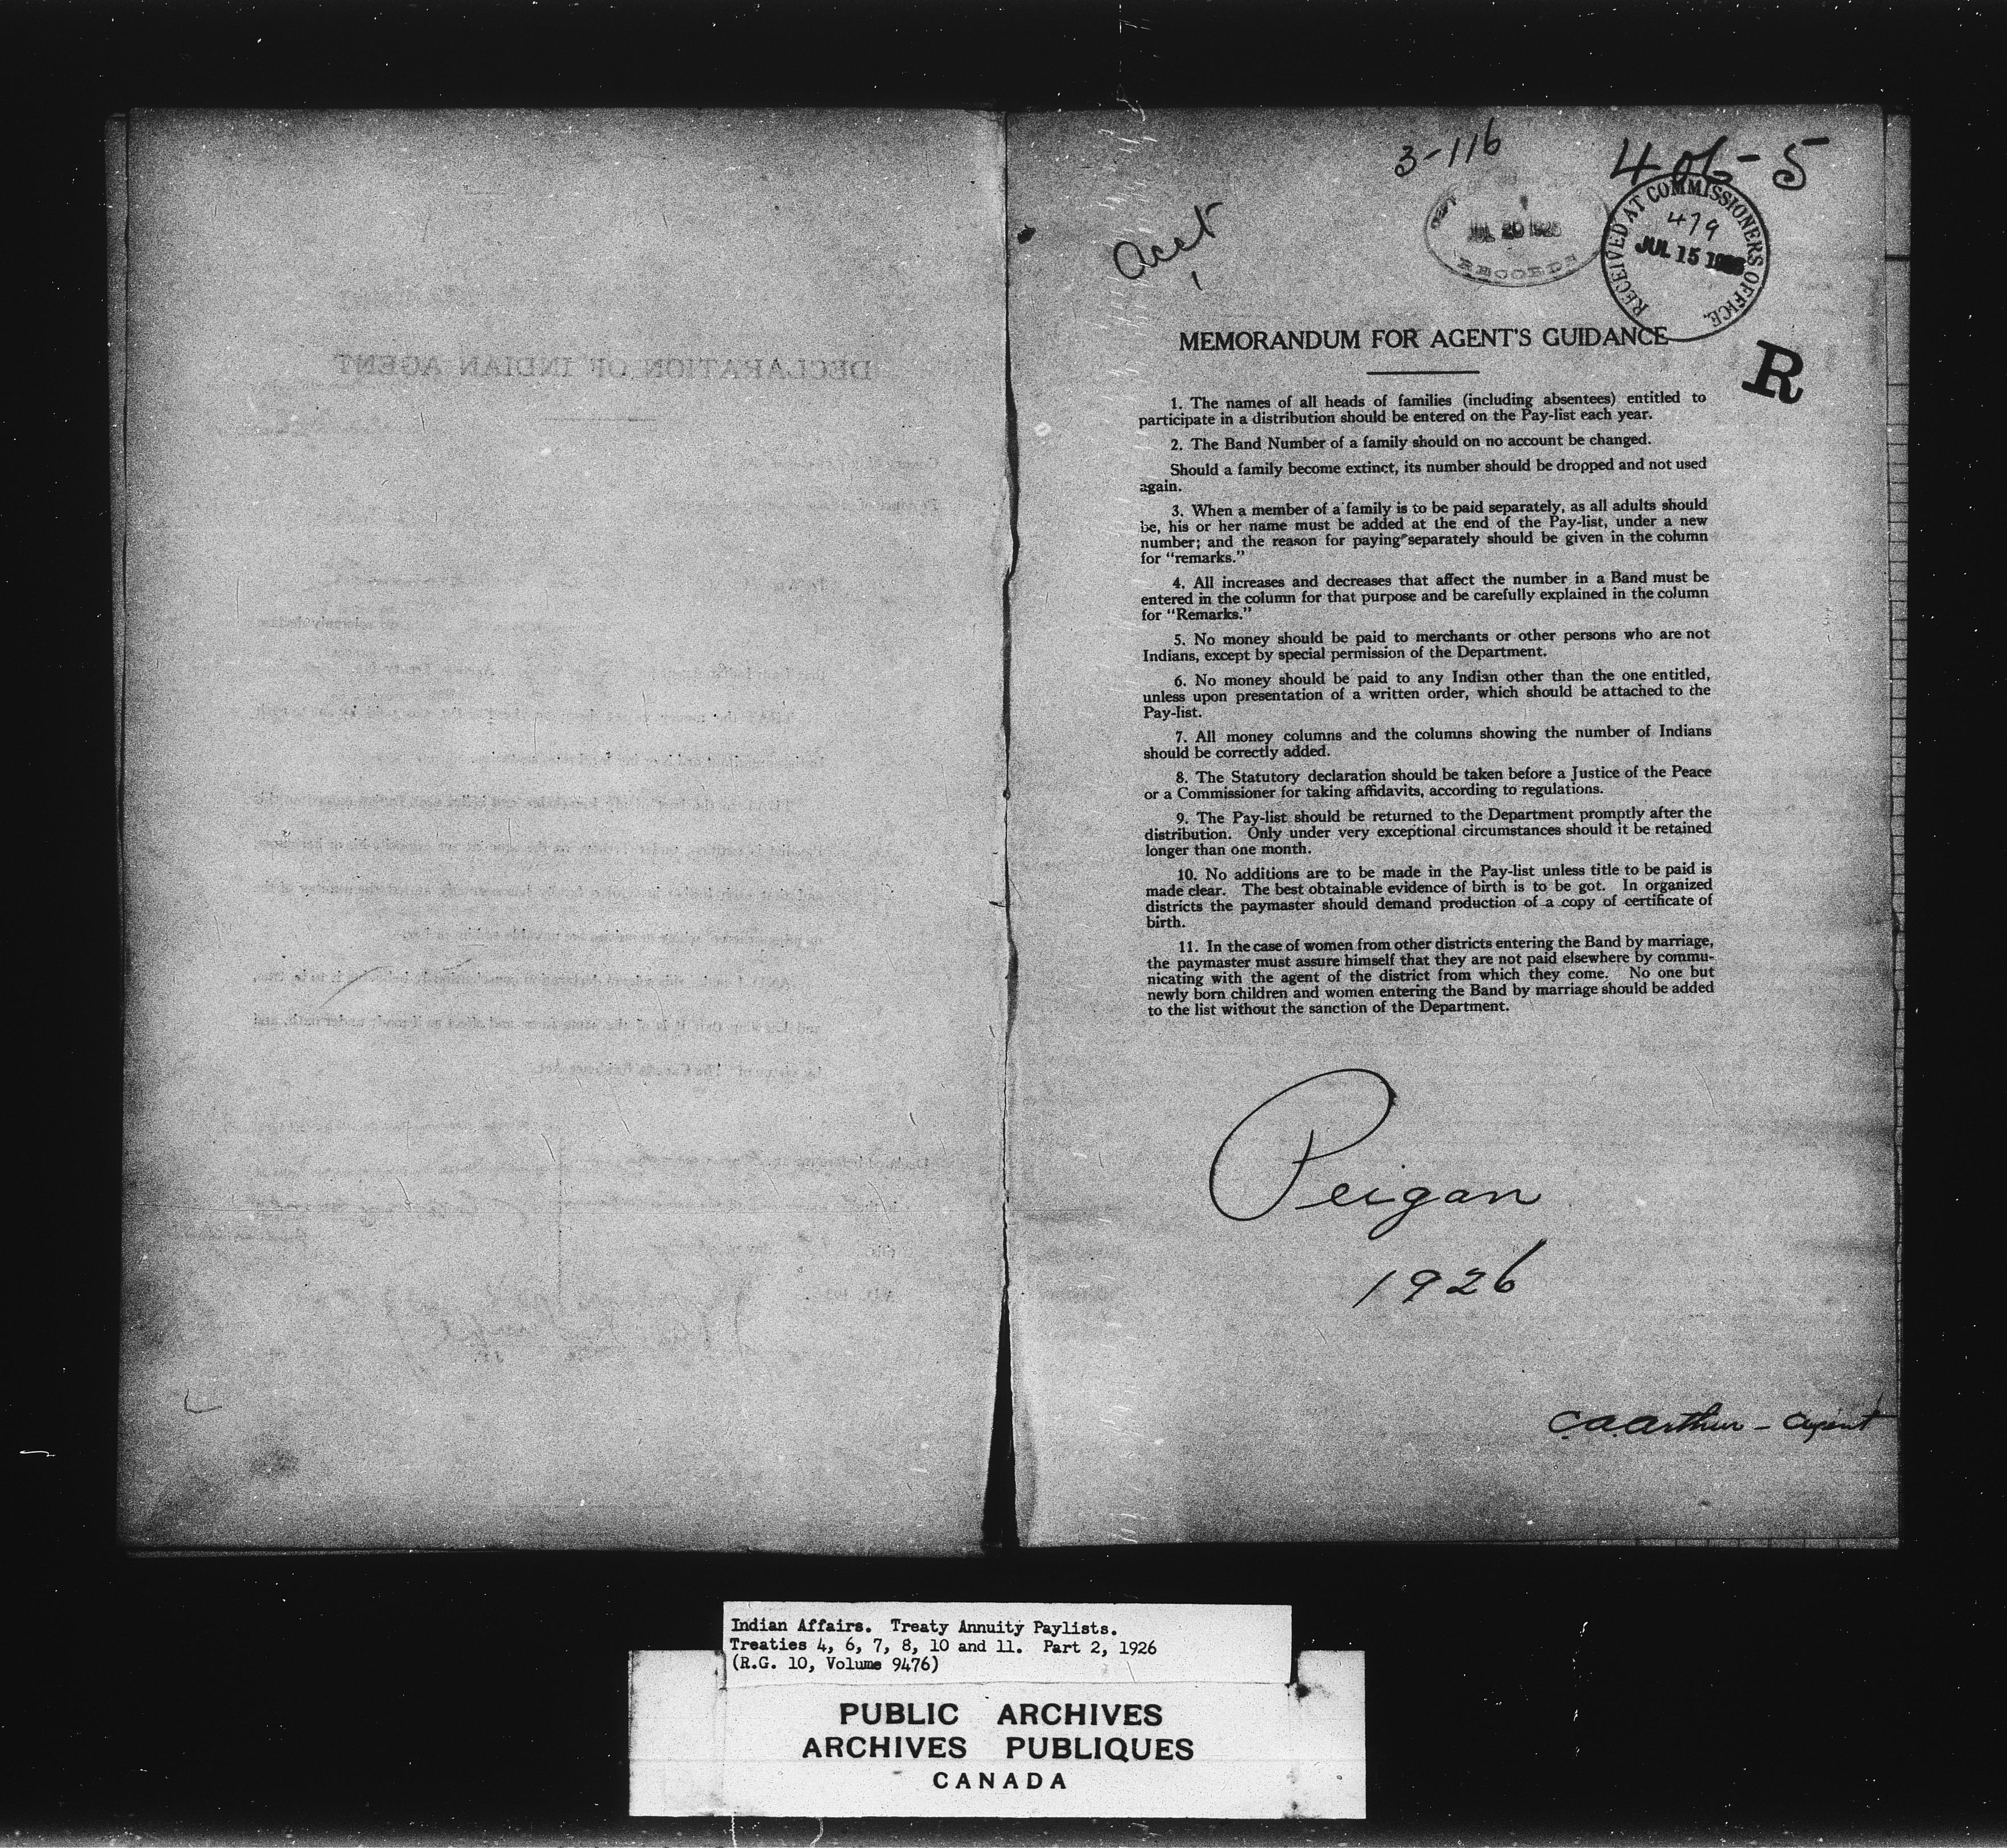 DECLARATION OF INDIAN AGENT
3-116
406-5
Acct
RECEIVED AT COMMISSIONERS OFFICE
479
JUL 15
JUL 20
RECORDS
R
MEMORANDUM FOR AGENT'S GUIDANCE
1. The names of all heads of families (including absentees) entitled to
participate in a distribution should be entered on the Pay-list each year.
2. The Band Number of a family should on no account be changed.
Should a family become extinct, its number should be dropped and not used
again.
3. When a member of a family is to be paid separately, as all adults should
be, his or her name must be added at the end of the Pay-list, under a new
number; and the reason for paying separately should be given in the column
for "remarks."
4. All increases and decreases that affect the number in a Band must be
entered in the column for that purpose and be carefully explained in the column
for "Remarks."
5. No money should be paid to merchants or other persons who are not
Indians, except by special permission of the Department.
6. No money should be paid to any Indian other than the one entitled,
unless upon presentation of a written order, which should be attached to the
Pay-list.
7. All money columns and the columns showing the number of Indians
should be correctly added.
8. The Statutory declaration should be taken before a Justice of the Peace
or a Commissioner for taking affidavits, according to regulations.
9. The Pay-list should be returned to the Department promptly after the
distribution. Only under very exceptional circumstances should it be retained
longer than one month.
10. No additions are to be made in the Pay-list unless title to be paid is
made clear. The best obtainable evidence of birth is to be got. In organized
districts the paymaster should demand production of a copy of certificate of
birth.
11. In the case of women from other districts entering the Band by marriage,
the paymaster must assure himself that they are not paid elsewhere by commu-
nicating with the agent of the district from which they come. No one but
newly born children and women entering the Band by marriage should be added
to the list without the sanction of the Department.
Peigan
1926
C.A. Arthur - Agent
Indian Affairs. Treaty Annuity Paylists.
Treaties 4, 6, 7, 8, 10 and 11. Part 2, 1926
(R.G. 10, Volume 9476)
PUBLIC ARCHIVES
ARCHIVES PUBLIQUES
CANADA